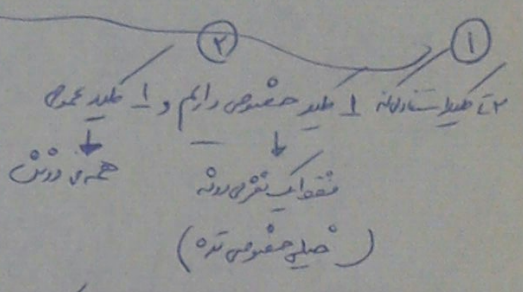 ① ②
۲ تا کلید استفاده 1 کلید خصوصی داریم و 1 کلید عمومی
همه می‌دونن
فقط یک نفر می‌دونه
(خیلی خصوصی تره)